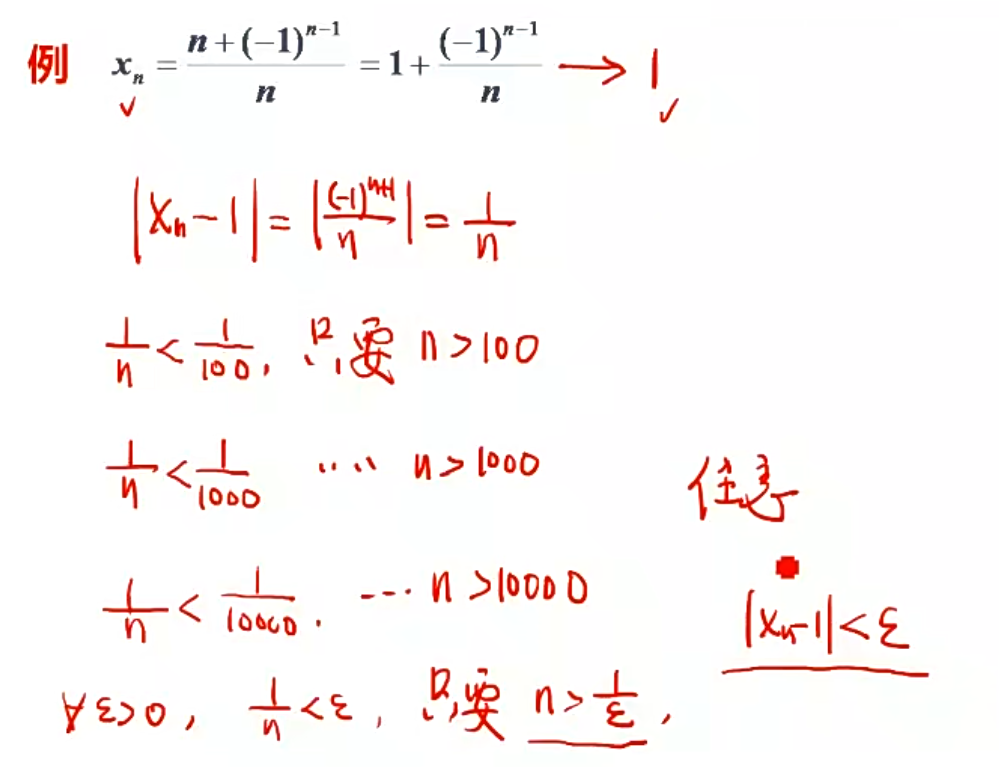 例 xₙ = (n+(-1)ⁿ⁻¹)/n = 1+(-1)ⁿ⁻¹/n → 1
|xₙ-1| = |(-1)ⁿ⁺¹/n| = 1/n
1/n < 1/100, 只要 n>100
1/n < 1/1000 ···· n>1000
任意
1/n < 1/10000. ··· n>10000
|xₙ-1|<ε
∀ε>0, 1/n<ε, 只要 n>1/ε,